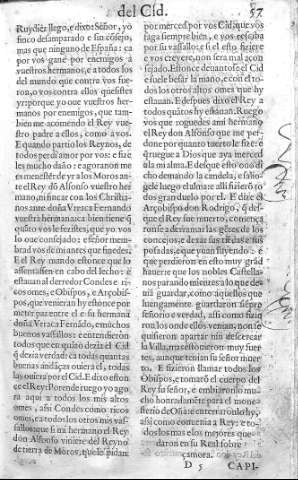 del Cid. 57
Ruydiez llego, e dixo: Señor, yo
finco desamparado e sin cõsejo,
mas que ninguno de España: ca
por vos gane por enemigos a
vuestros hermanos, e a todos los
del mundo que contra vos fue
ron, o vos contra ellos quesistes
yr: porque yo oue vuestros her-
manos por enemigos, que tam
bien me acomendo el Rey vue
stro padre a ellos, como a vos.
E quando partio los Reynos, de
todos perdi amor por vos: e fize
les mucho daño: e agora non me
es menester de yr a los Moros an-
te el Rey dõ Alfonso vuestro her
mano, ni fincar con los Christia-
nos ante doña Vrraca Fernando
vuestra hermana: ca bien tiene q̃
quãto vos le fezistes, que yo vos
lo oue consejado: e señor mem-
brad vos de mi antes que finedes.
E el Rey mando estonce que lo
assentassen en cabo del lecho: e
estauan al derredor Condes e ri-
cos omes, e Obispos, e Arçobis-
pos, que venieran hy estonce por
meter paz entre el e su hermana
doña Vrraca Fernãdo, e muchos
buenos vassallos: e entendieron
todos que en quãto dezia el Cid
q̃ dezia verdad: ca todas quantas
buenas andãças ouiera el, todas
las ouiera por el Cid. E dixo estõ
ce el Rey: Por ende ruego yo ago
ra aqui a todos los mis altos
omes, assi Condes como ricos
omes, e a todos los otros mis vas-
sallos: que si mi hermano el Rey
don Alfonso viniere del Reyno
de tierra de Moros, que le pidan
por merced por vos Cid, que vos
faga siempre bien, e vos reciba
por su vassallo: e si el esto fiziere
e vos creyere, non sera mal acon
sejado. Estonce leuantose el Cid
e fuele besar la mano, e con el to-
dos los otros altos omes que hy
estauan. E despues dixo el Rey a
todos quãtos hy estauan: Ruego
vos que roguedes a mi hermano
el Rey don Alfonso que me per-
done por quanto tuerto le fize: e
q̃ ruegue a Dios que aya merced
a la mi alma. E desque esto ouo di
cho demando la candela, e salio-
sele luego el alma: e alli fizierõ to
dos gran duelo por el. E dize el
Arçobispo don Rodrigo, q̃ des-
que el Rey fue muerto, començà
ronse a derramar las gẽtes de los
concejos, e dexar sus tiẽdas e sus
posadas, e que yuan fuyendo: e
que perdieron en esto muy grãd
hauer: e que los nobles Castella-
nos parando mientes a lo que de-
uiã guardar, como aquellos que
luengamente guardaron siempre
señorio e verdad, assi como fizie
ron los onde ellos venian, non se
quisieron apartar nin descercar
la Villa, mas estouieron muy fuer
tes, aunque tenian su señor muer
to. E fizieron llamar todos los
Obispos, e tomarõ el cuerpo del
Rey su señor, e embiaronlo mu-
cho honradamẽte para el mone-
sterio de Oña: e enterraronlo hy,
assi como conuenia a Rey: e to-
dos los mas e los mejores que
daron en su Real sobre
çamora.
D 5 CAPI-